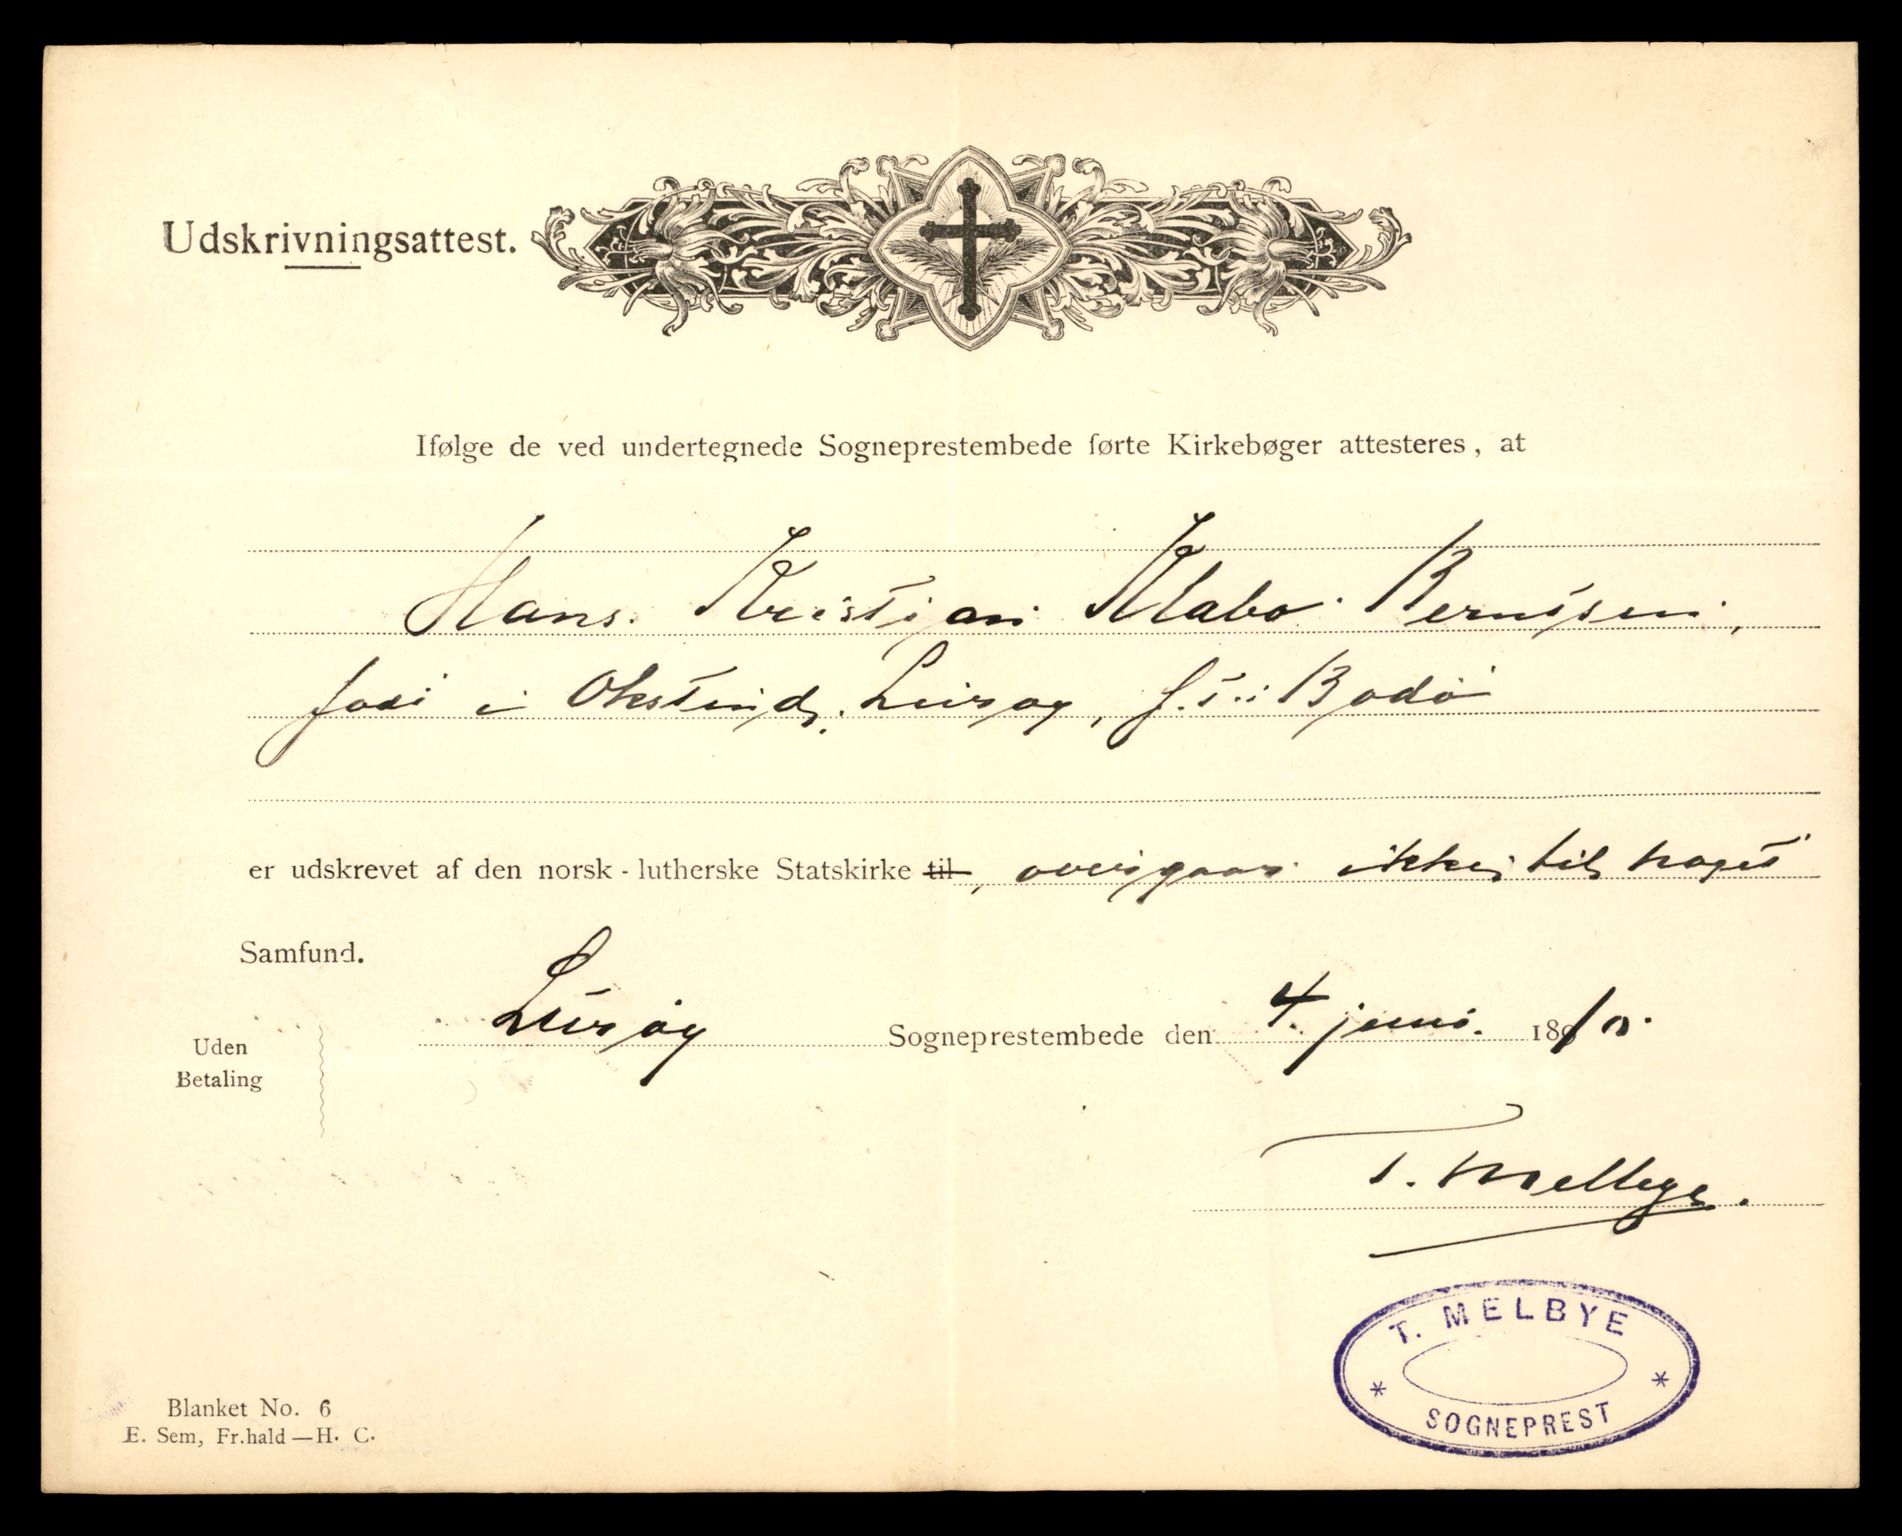 Udskrivningsattest.
Ifølge de ved undertegnede Sogneprestembede førte Kirkebøger attesteres, at
Hans Kristian Klabo Berntsen,
i Okstind, Lurøy, f. t. i Bodø
er udskrevet af den norsk-lutherske Statskirke til, overgaar ikke til noget
Samfund.
Lurøy Sogneprestembede den 4. juni 1910.
Uden
Betaling
T. Melbye.
T. MELBYE
* *
SOGNEPREST
Blanket No. 6
E. Sem, Fr.hald—H. C.